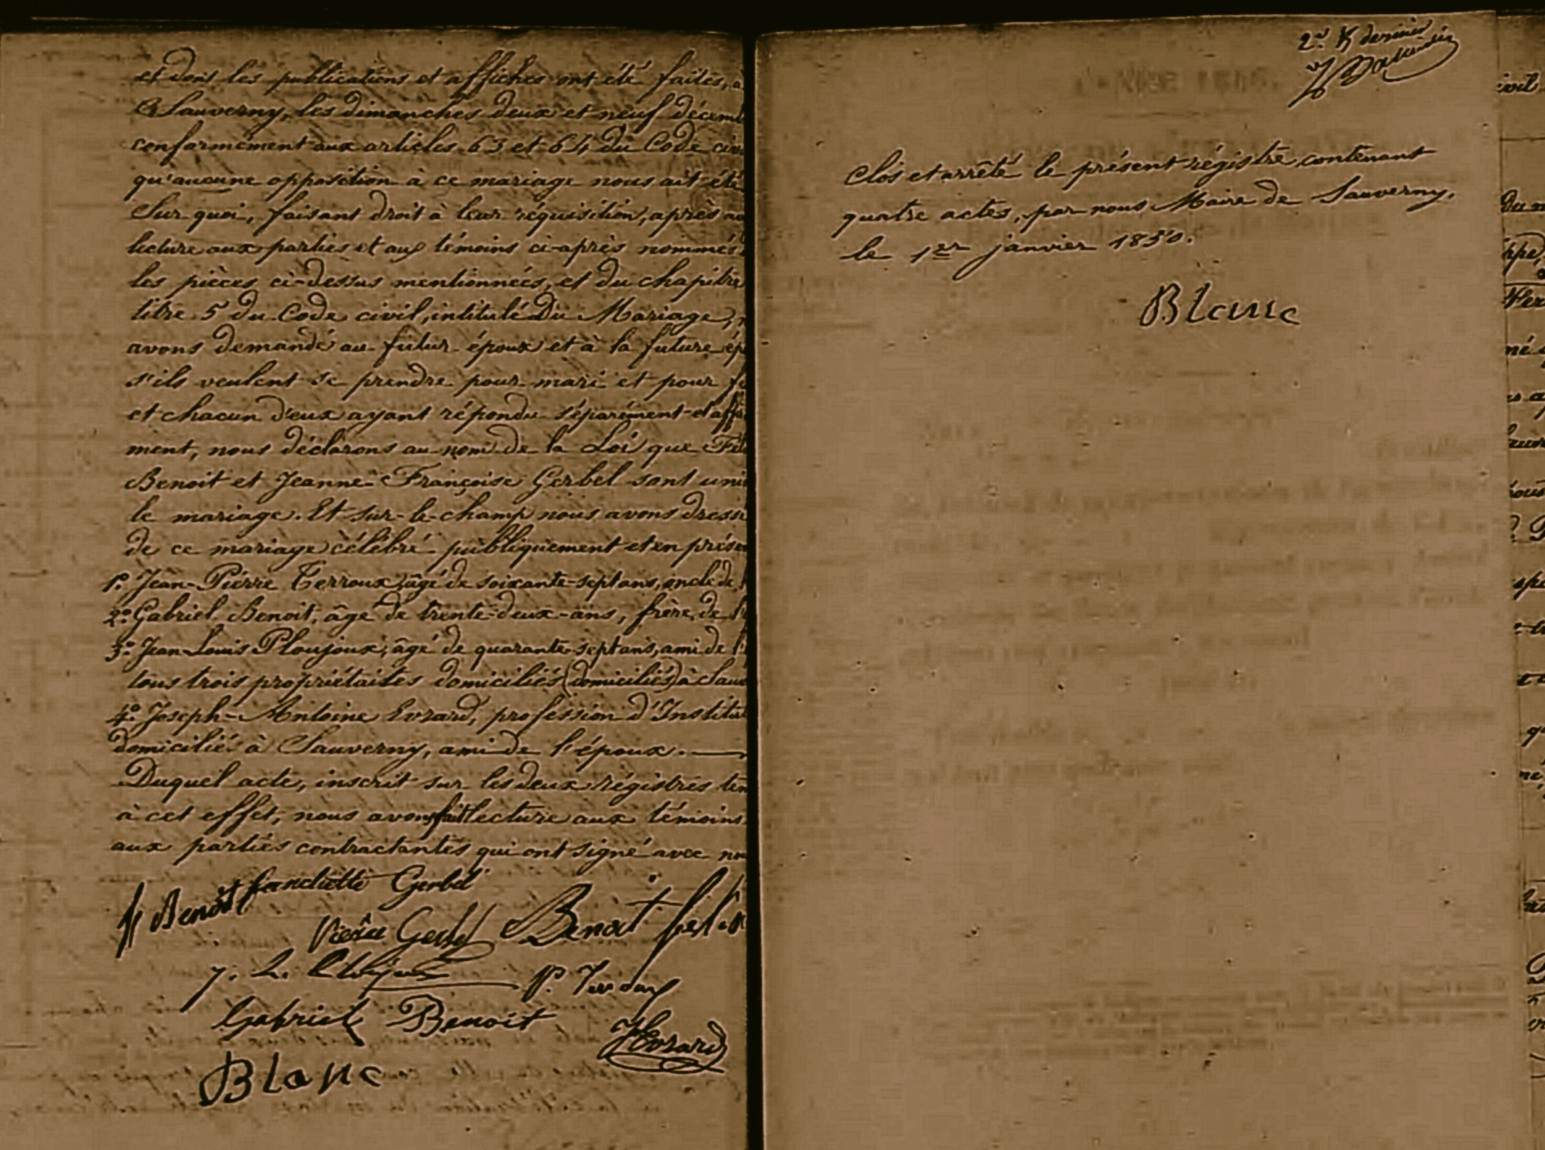 et dont les publications et affiches ont été faites, a
à Sauverny, les dimanches deux et neuf décem
conformément aux articles 63 et 64 du Code civ
qu'aucune opposition à ce mariage nous ait été
Sur quoi, faisant droit à leur réquisition, après
lecture aux parties et aux témoins ci-après nommés
les pièces ci-dessus mentionnées, et du chapitre
titre 5 du Code civil, intitulé Du Mariage,
avons demandé au futur époux et à la future ép
s'ils veulent se prendre pour mari et pour f
et chacun d'eux ayant répondu séparément et aff
ment, nous déclarons au nom de la Loi que
Benoit et Jeanne-Françoise Gerbel sont uni
le mariage. Et sur-le-champ nous avons dressé
de ce mariage célébré publiquement et en prése
1º Jean-Pierre Terroux, âgé de soixante-sept ans, oncle de l
2º Gabriel Benoit, âgé de trente-deux-ans, frère de l'
3º Jean-Louis Ploujoux, âgé de quarante-sept ans, ami de l'
tous trois propriétaires domiciliés (domiciliés) à Sauv
4º Joseph-Antoine Evrard, profession d'Institu
domiciliés à Sauverny, ami de l'époux.
Duquel acte, inscrit sur les deux régistres ten
à cet effet, nous avons fait lecture aux témoins
aux parties contractantes qui ont signé avec no
Benoît franciette Gerbel
Gerbel Benoit felix
J. L.
Gabriel Benoit Evrard
Blanc
2e & dernier
Clos et arrêté le présent régistre contenant
quatre actes, par nous Maire de Sauverny,
le 1er janvier 1850.
Blanc